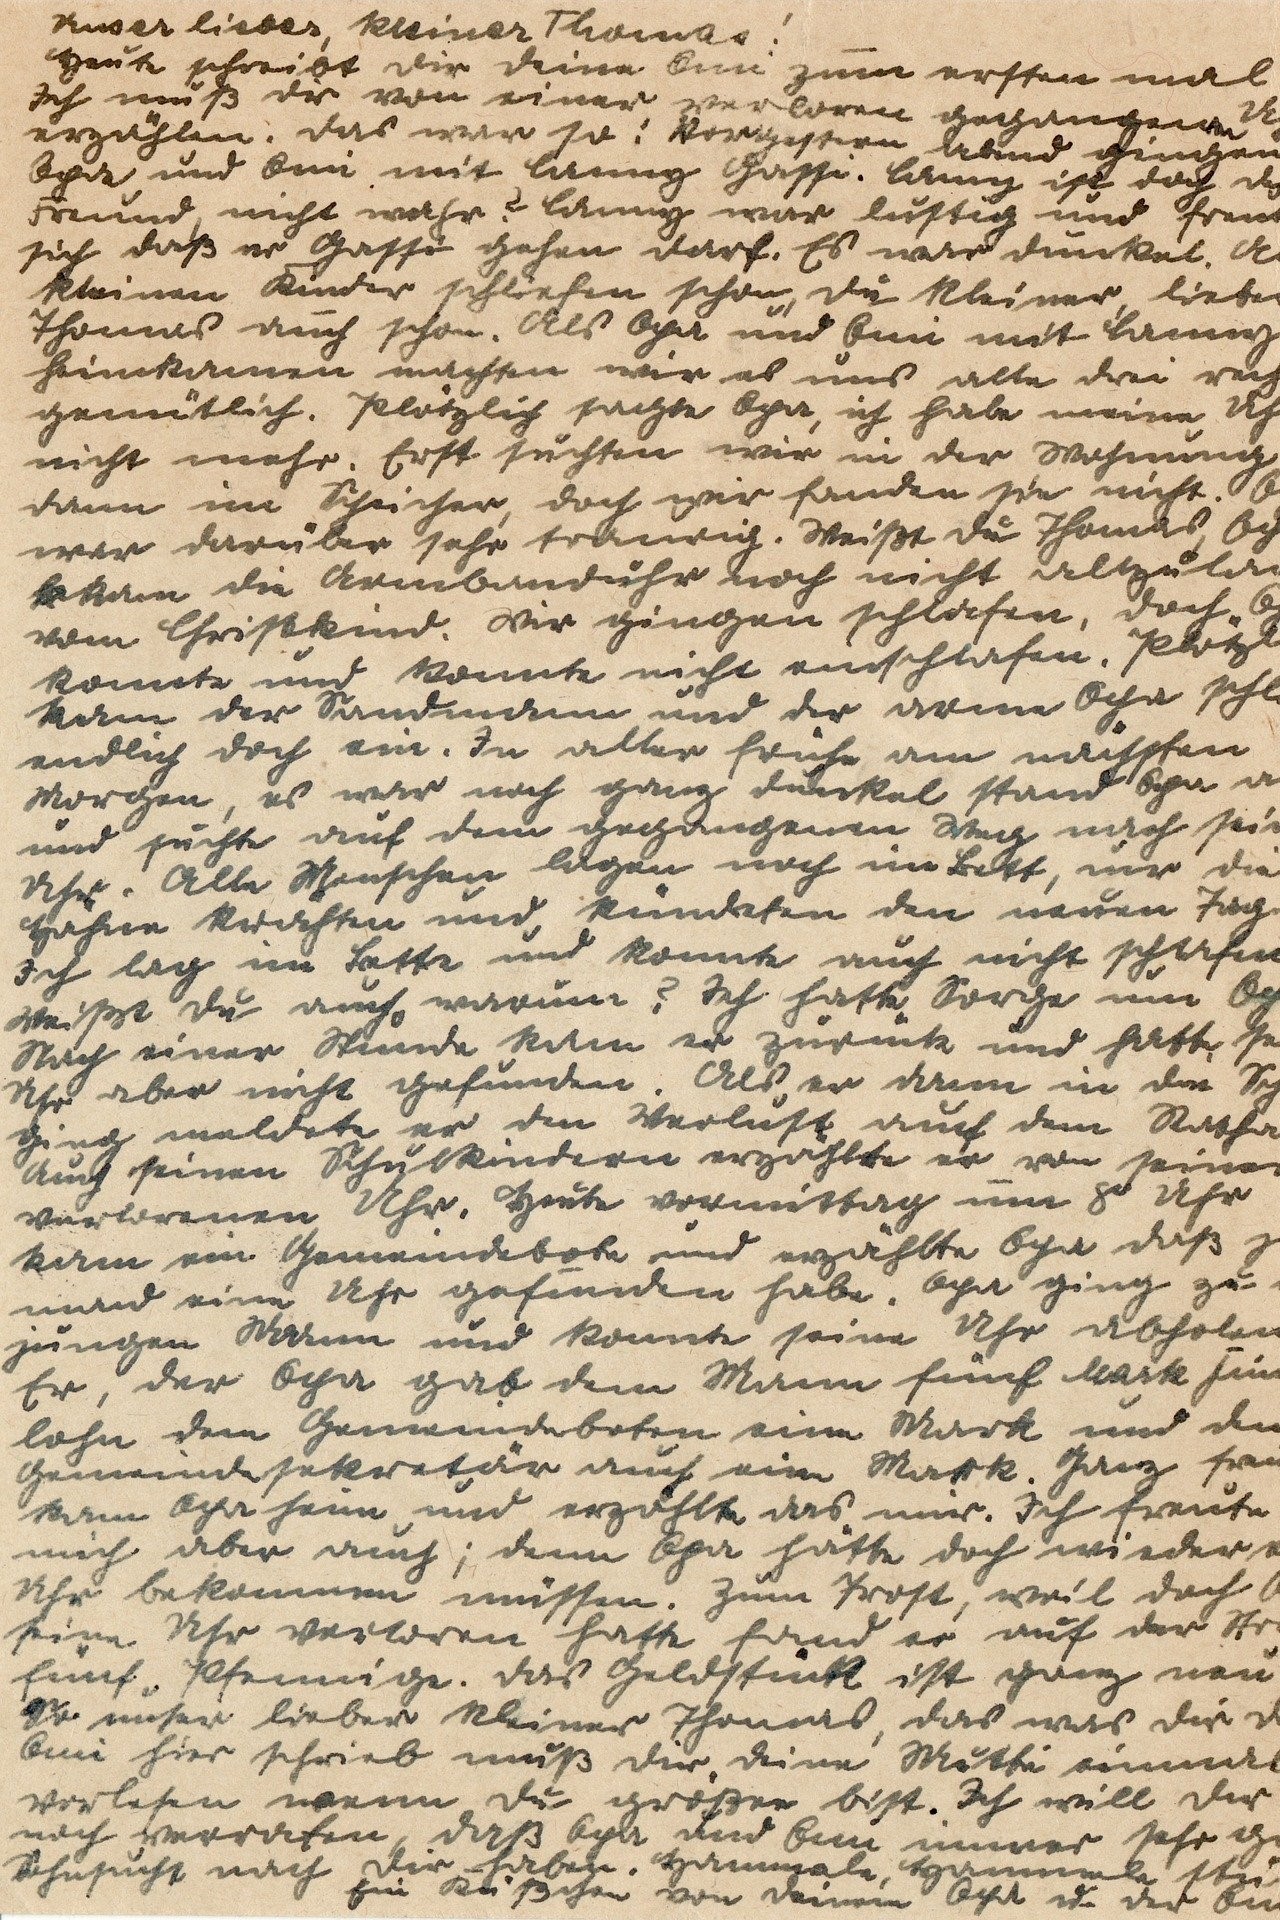 Unser lieber, kleiner Thomas!
Heute schreibt dir deine Omi zum ersten mal
Ich muß dr von einer verloren gegangenen
erzählen. Das war so: Vorgestern abend gingen
Opa und Omi mit Lanny Gassi. Lanny ist doch
Freund, nicht wahr? Lanny war lustig und
sich daß er Gassi gehen darf. Es war dunkel.
kleinen Kinder schliefen schon, du kleiner, lieber
Thomas auch schon. Als Opa und Omi mit Lanny
heimkamen machten wir es uns alle drei
gemütlich. Plötzlich sagte Opa, ich habe meine
nicht mehr. Erst suchten wir in der Wohnung
dann im Scheicher, doch wir fanden sie nicht.
war darüber sehr traurig. Weißt du Thomas,
bekam die Armbanduhr noch nicht
vom Christkind. Wir gingen schlafen, doch
konnte und konnte nicht einschlafen.
kam der Sandmann und der arme Opa
endlich doch ein. In aller frühe am nächsten
Morgen, es war noch ganz dunkel stand Opa
und suchte auf dem gegangenen Weg nach
Uhr. Alle Menschen lagen noch im Bett, nur die
Hähne krähten und kündeten den neuen
Ich lag im Bette und konnte auch nicht schlafen
Weißt du auch warum? Ich hatte Sorge um
Nach einer Stunde kam er zurück und hatte
Uhr aber nicht gefunden. Als er dann in die
ging meldete er den Verlust auf dem
Auch seinen Schulkindern erzählte er von seiner
verlorenen Uhr. Heute vormittag um 8 Uhr
kam ein Gemeindebote und erzählte Opa daß
mand eine Uhr gefunden habe. Opa ging zu
jungen Mann und konnte seine Uhr abholen
Er, der Opa gab dem Mann fünf Mark
lohn dem Gemeindeboten eine Mark und dem
Gemeindesekretär auch eine Mark. Ganz
kam Opa heim und erzählte das mir. Ich freute
mich aber auch; denn Opa hätte doch wieder
Uhr bekommen müssen. Zum Trost, weil doch
seine Uhr verloren hatte fand er auf der
fünf Pfennige. Das Geldstück ist ganz neu
So unser lieber kleiner Thomas, das was dir
Omi hier schrieb muß dir deine Mutti einmal
vorlesen wenn du größer bist. Ich will dir
noch verraten, daß Opa und Omi immer sehr
Sehnsucht nach dir haben.
Ein Küßchen von deinem Opa u. der